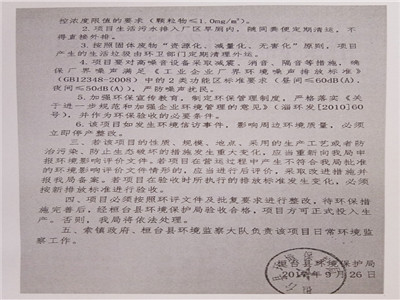 控浓度限值的要求（颗粒物≤1.0mg/m³）。
2.项目生活污水排入厂区旱厕内，随同粪便定期清运，不
得直接外排。
3.按照固体废物“资源化、减量化、无害化”原则，项目
产生的生活垃圾由环卫部门定期清理外运。
4.项目要对高噪音设备采取减震、消音、隔音等措施，确
保厂界噪声满足《工业企业厂界环境噪声排放标准》
(GB12348-2008）中的2类功能区标准要求（昼间≤60dB(A)、
夜间≤50dB(A)），严防噪声扰民。
5.加强环保宣传教育，制定环保管理制度，严格落实《关
于进一步规范和加强企业环境管理的意见》（淄环发[2010]60
号），并作为环保验收的必要条件。
6.该项目如发生环境信访事件，影响周边环境质量，必须
立即停产整改。
三、若该项目的性质、规模、地点、采用的生产工艺或者防
治污染、防止生态破坏的措施发生重大变化，应当重新向我局申
报环境影响评价文件。若项目在营运过程中产生不符合我局批准
的环境影响评价文件情形的，应当进行后评价，采取改进措施并
报我局备案。若项目在验收时所执行的排放标准发生变化，必须
按新排放标准进行验收。
四、项目必须按照环评文件及批复要求进行整改，待环保措
施完善后，经桓台县环境保护局验收合格，项目方可正式投入生
产。否则，我局将依法处理。
五、索镇政府、桓台县环境监察大队负责该项目日常环境监
察工作。
桓台县环境保护局
2017年9月26日